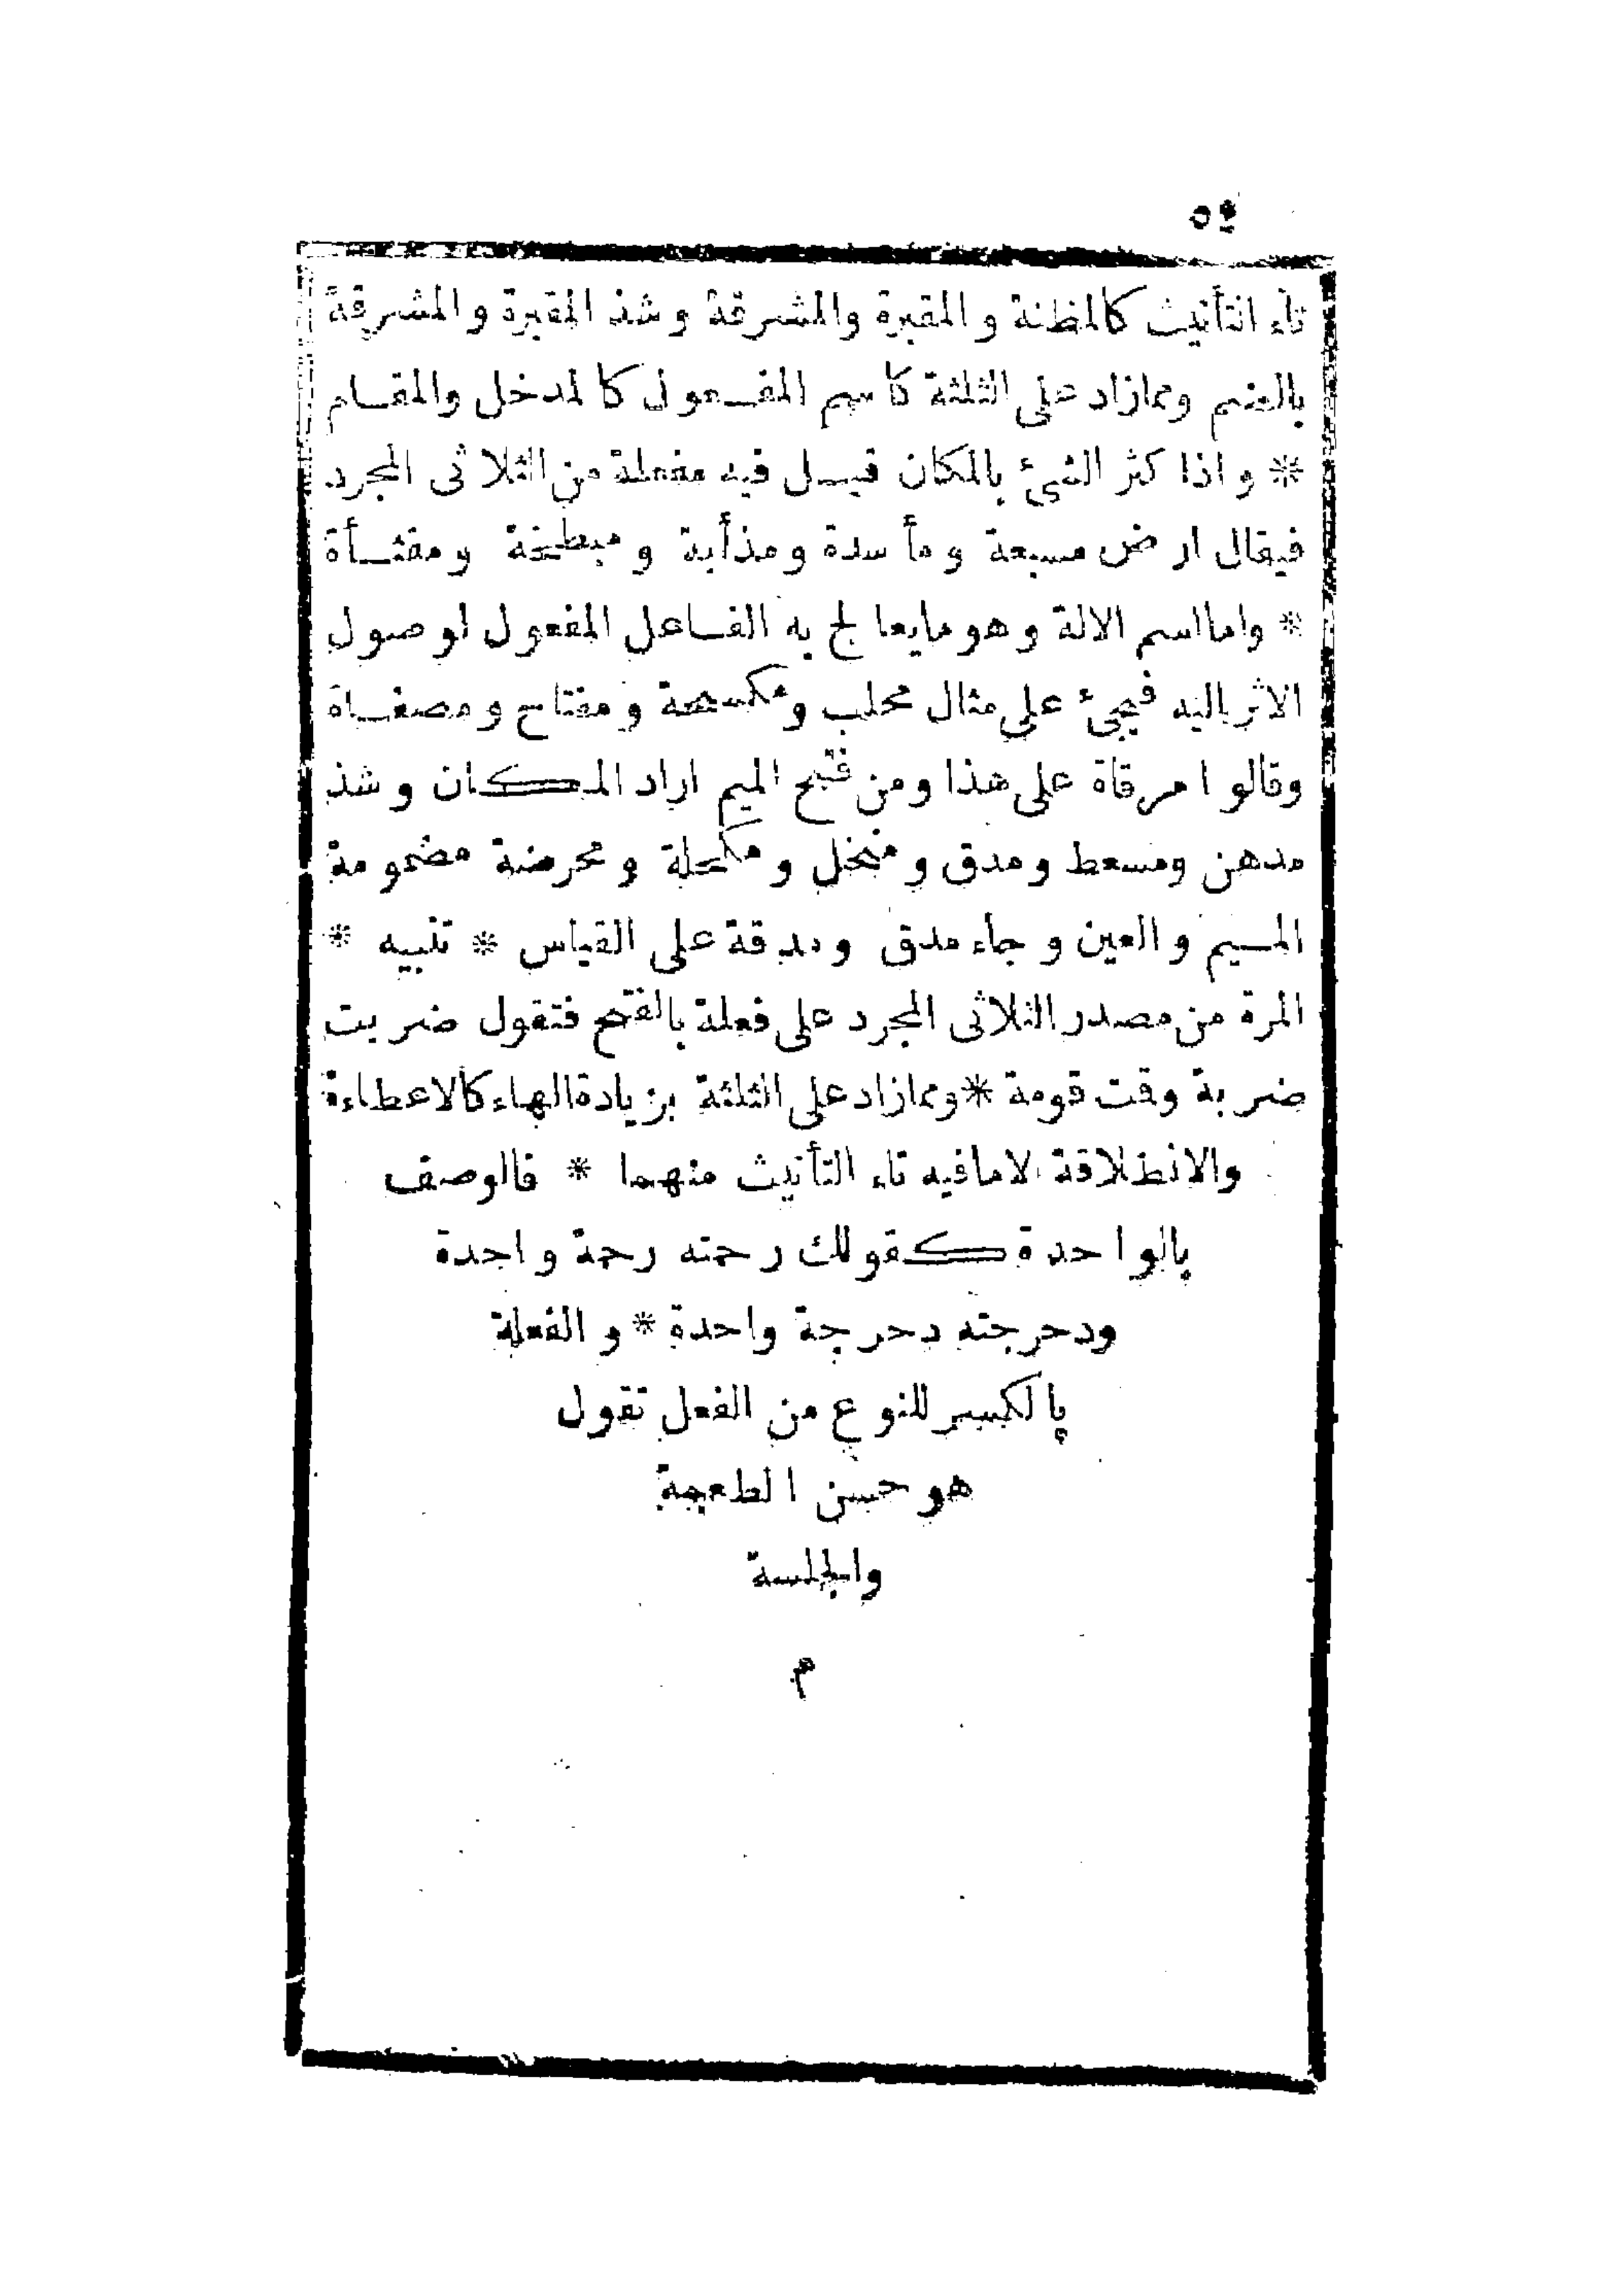 تاء التأنيث كالمظنة والمقبرة والمشرقة وشذ المقبرة والمشرقة
بالضم ومما زاد على الثلثة كاسم المفعول كالمدخل والمقام
* واذا كثر الشئ بالمكان قيل فيه مفعلة من الثلاثى المجرد
فيقال ارض مسبعة ومأسدة ومذأبة ومبطخة ومقثأة
* واما اسم الالة وهو ما يعالج به الفاعل المفعول لوصول
الاثر اليه فيجئ على مثال محلب ومكسحة ومفتاح ومصفاة
وقالوا مرقاة على هذا ومن فتح الميم اراد المكان وشذ
مدهن ومسعط ومدق ومنخل ومكحلة ومحرضة مضمومة
الميم والعين وجاء مدق ومدقة على القياس * تنبيه *
المرة من مصدر الثلاثى المجرد على فعلة بالفتح فتقول ضربت
ضربة وقت قومة * ومما زاد على الثلثة بزيادة الهاء كالاعطاءة
والانطلاقة الا ما فيه تاء التأنيث منهما * فالوصف
بالواحدة كقولك رحمته رحمة واحدة
ودحرجته دحرجة واحدة * والفعلة
بالكسر للنوع من الفعل تقول
هو حسن الطعمة
والجلسة
م